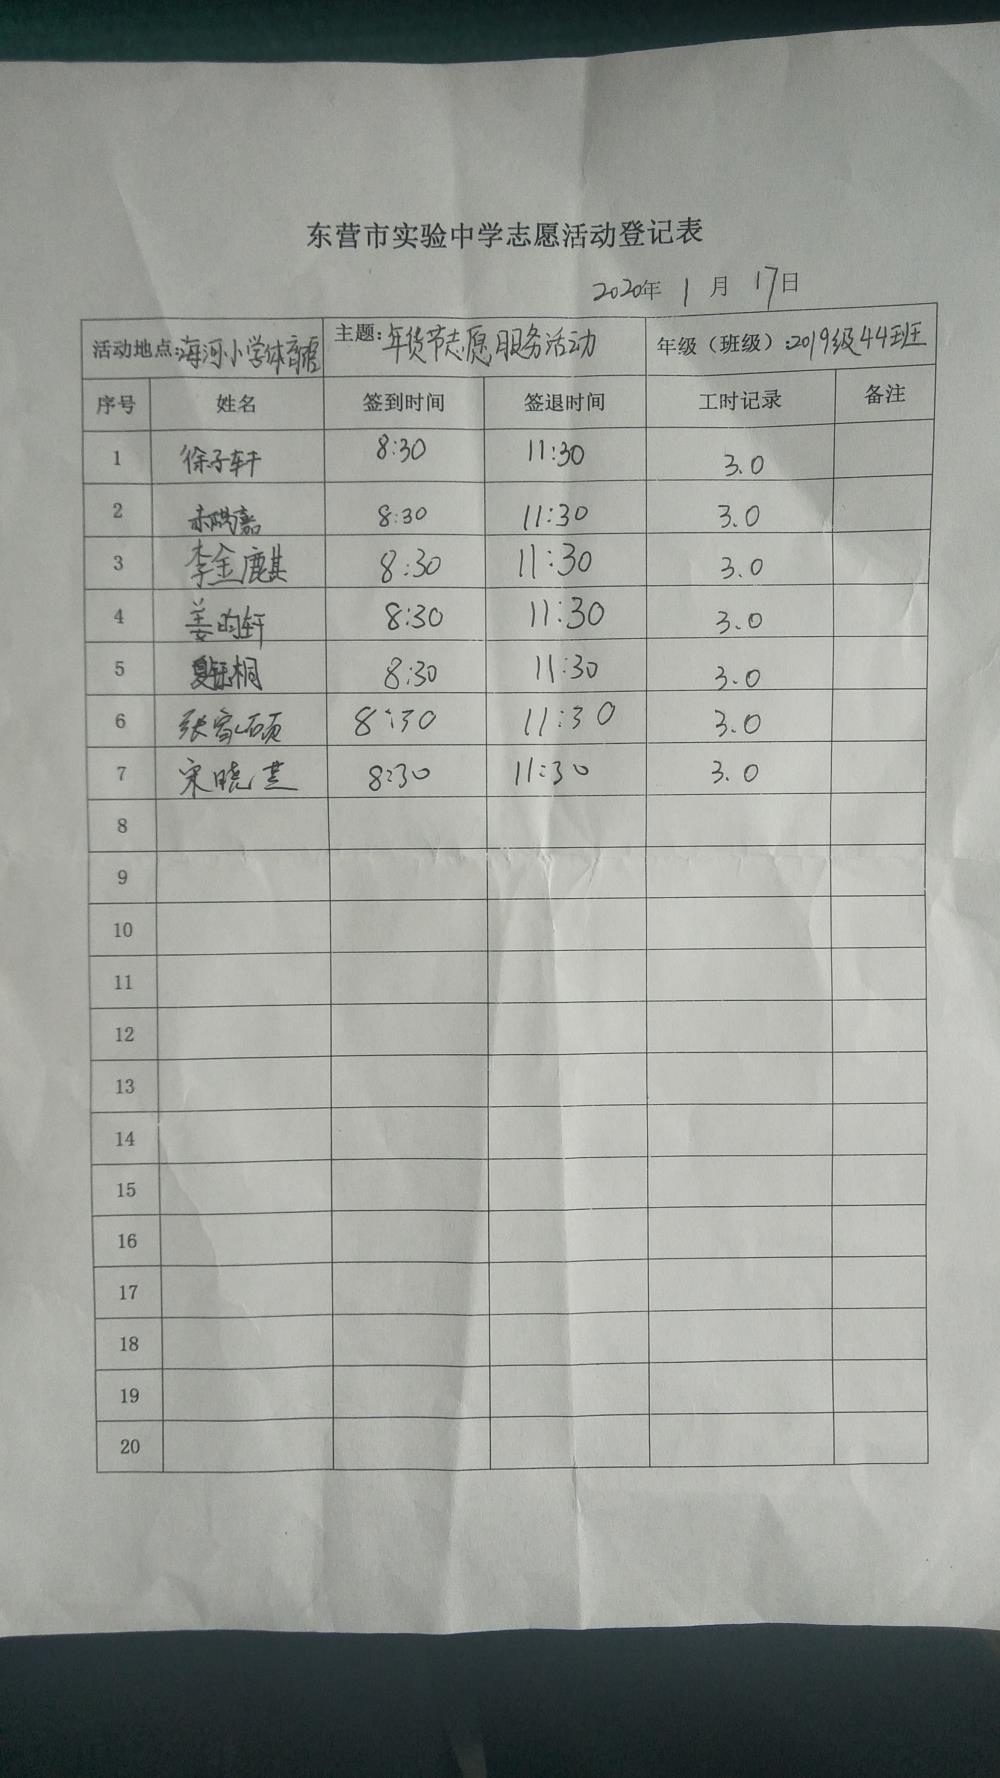 东营市实验中学志愿活动登记表
2020年 1 月 17日
活动地点:海河小学体育馆 主题:年货节志愿服务活动 年级（班级）:2019级44班
序号 姓名 签到时间 签退时间 工时记录 备注
1 徐子轩 8:30 11:30 3.0
2 8:30 11:30 3.0
3 李金麒 8:30 11:30 3.0
4 姜昀轩 8:30 11:30 3.0
5 8:30 11:30 3.0
6 张家硕 8:30 11:30 3.0
7 宋晓 8:30 11:30 3.0
8
9
10
11
12
13
14
15
16
17
18
19
20